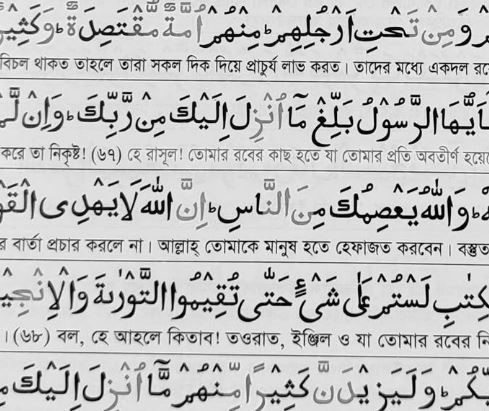 هِمْ وَمِنْ تَحْتِ أَرْجُلِهِمْ ۚ مِنْهُمْ أُمَّةٌ مُّقْتَصِدَةٌ ۖ وَكَثِيْرٌ
বিচল থাকত তাহলে তারা সকল দিক দিয়ে প্রাচুর্য লাভ করত। তাদের মধ্যে একদল রয়ে
يٰٓاَيُّهَا الرَّسُوْلُ بَلِّغْ مَآ اُنْزِلَ اِلَيْكَ مِنْ رَّبِّكَ ۖ وَاِنْ لَّمْ
করে তা নিকৃষ্ট! (৬৭) হে রাসূল! তোমার রবের কাছ হতে যা তোমার প্রতি অবতীর্ণ হয়েছে
وَاللّٰهُ يَعْصِمُكَ مِنَ النَّاسِ ۗ اِنَّ اللّٰهَ لَا يَهْدِى الْقَوْ
র বার্তা প্রচার করলে না। আল্লাহ তোমাকে মানুষ হতে হেফাজত করবেন। বস্তুত
كِتٰبِ لَسْتُمْ عَلٰى شَىْءٍ حَتّٰى تُقِيْمُوا التَّوْرٰىةَ وَالْاِنْجِيْ
। (৬৮) বল, হে আহলে কিতাব! তওরাত, ইঞ্জিল ও যা তোমার রবের নি
بِّكُمْ ۗ وَلَيَزِيْدَنَّ كَثِيْرًا مِّنْهُمْ مَّآ اُنْزِلَ اِلَيْكَ مِ